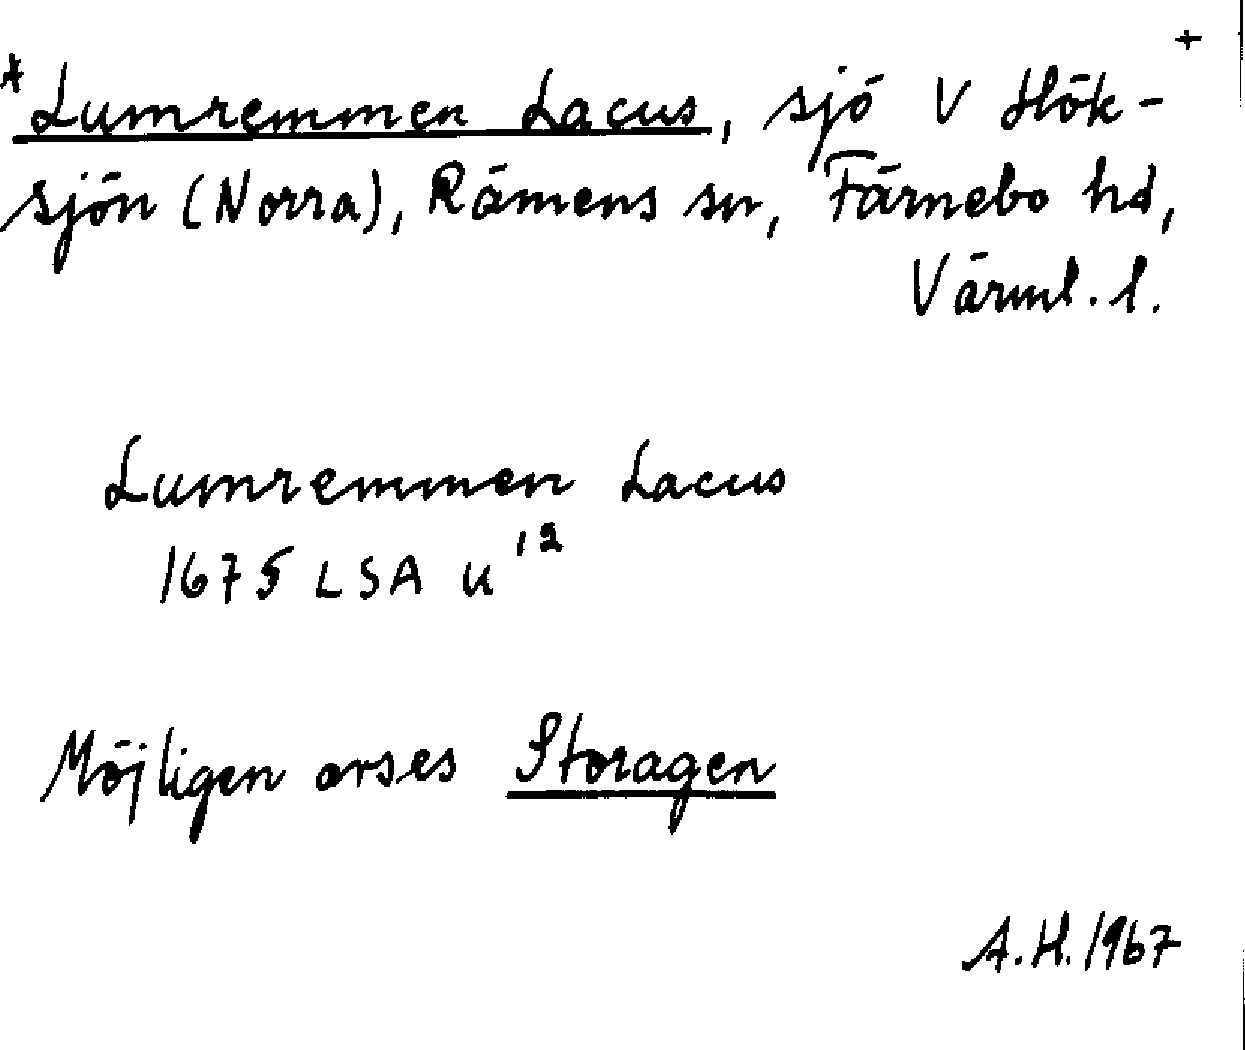 *Lumremmen Lacus, sjö V Hök-
sjön (Norra), Rämens sn, Färnebo hd,
Värml. l.
Lumremmen Lacus
1675 LSA U 12
Möjligen avses Storagen
A.H. 1967